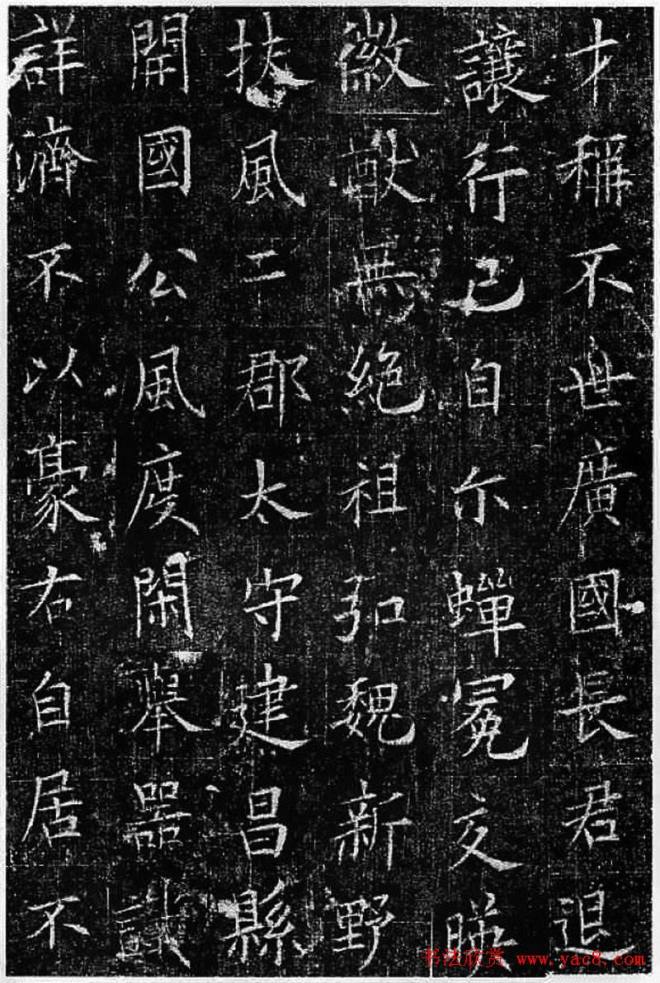 才稱不世廣國長君退
讓行己自尒蟬冕交暎
徽猷無絶祖弘魏新野
扶風二郡太守建昌縣
開國公風度閑舉器識
詳濟不以豪右自居不
书法欣赏 www.yac8.com